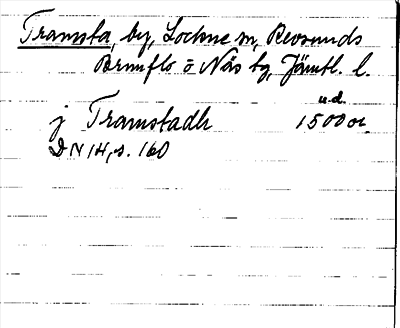 Tramsta, by, Lockne sn, Revsunds
Brunflo o Näs tg, Jämtl. l.
u.d.
j Tramstadh 1500 ol.
DN 14, s. 160